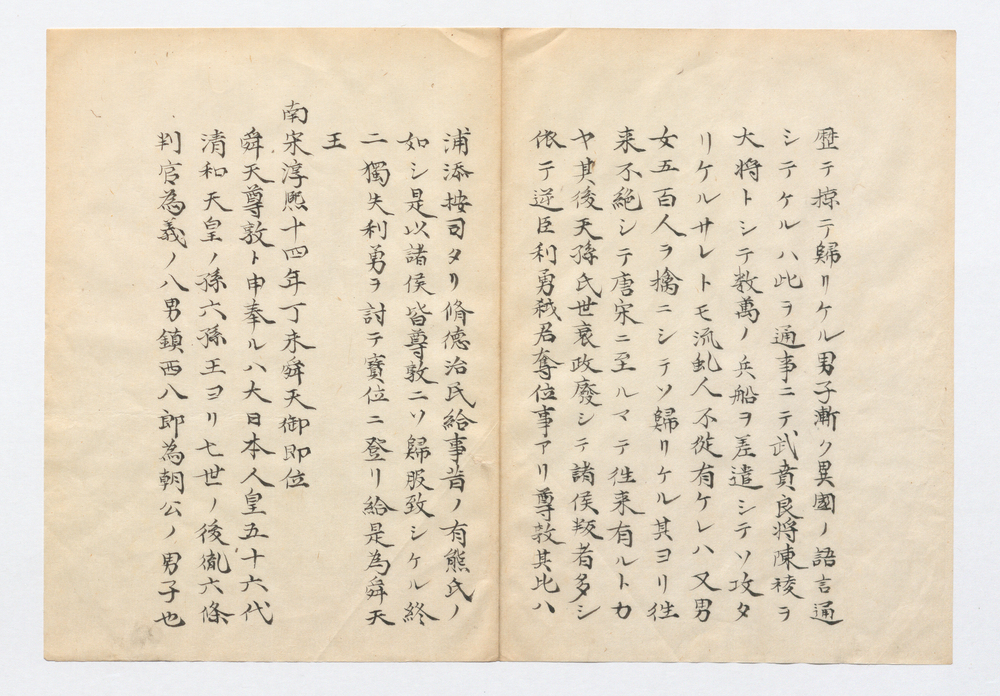 歴テ掠テ歸リケル男子漸ク異國ノ語言通
シテケルハ此ヲ通事ニテ武賁良将陳稜ヲ
大将トシテ数萬ノ兵船ヲ差遣シテソ攻タ
リケルサレトモ流虬人不從有ケレハ又男
女五百人ヲ擒ニシテソ歸リケル其ヨリ徃
来不絶シテ唐宋ニ至ルマテ徃来有ルトカ
ヤ其後天孫氏世衰政廢シテ諸侯叛者多シ
依テ逆臣利勇弑君奪位事アリ尊敦其比ハ
浦添按司タリ脩德治民給事昔ノ有熊氏ノ
如シ是以諸侯皆尊敦ニソ歸服致シケル終
ニ獨夫利勇ヲ討テ寶位ニ登リ給是為舜天
王
南宋淳熈十四年丁未舜天御即位
舜天尊敦ト申奉ルハ大日本人皇五十六代
清和天皇ノ孫六孫王ヨリ七世ノ後胤六條
判官為義ノ八男鎮西八郎為朝公ノ男子也